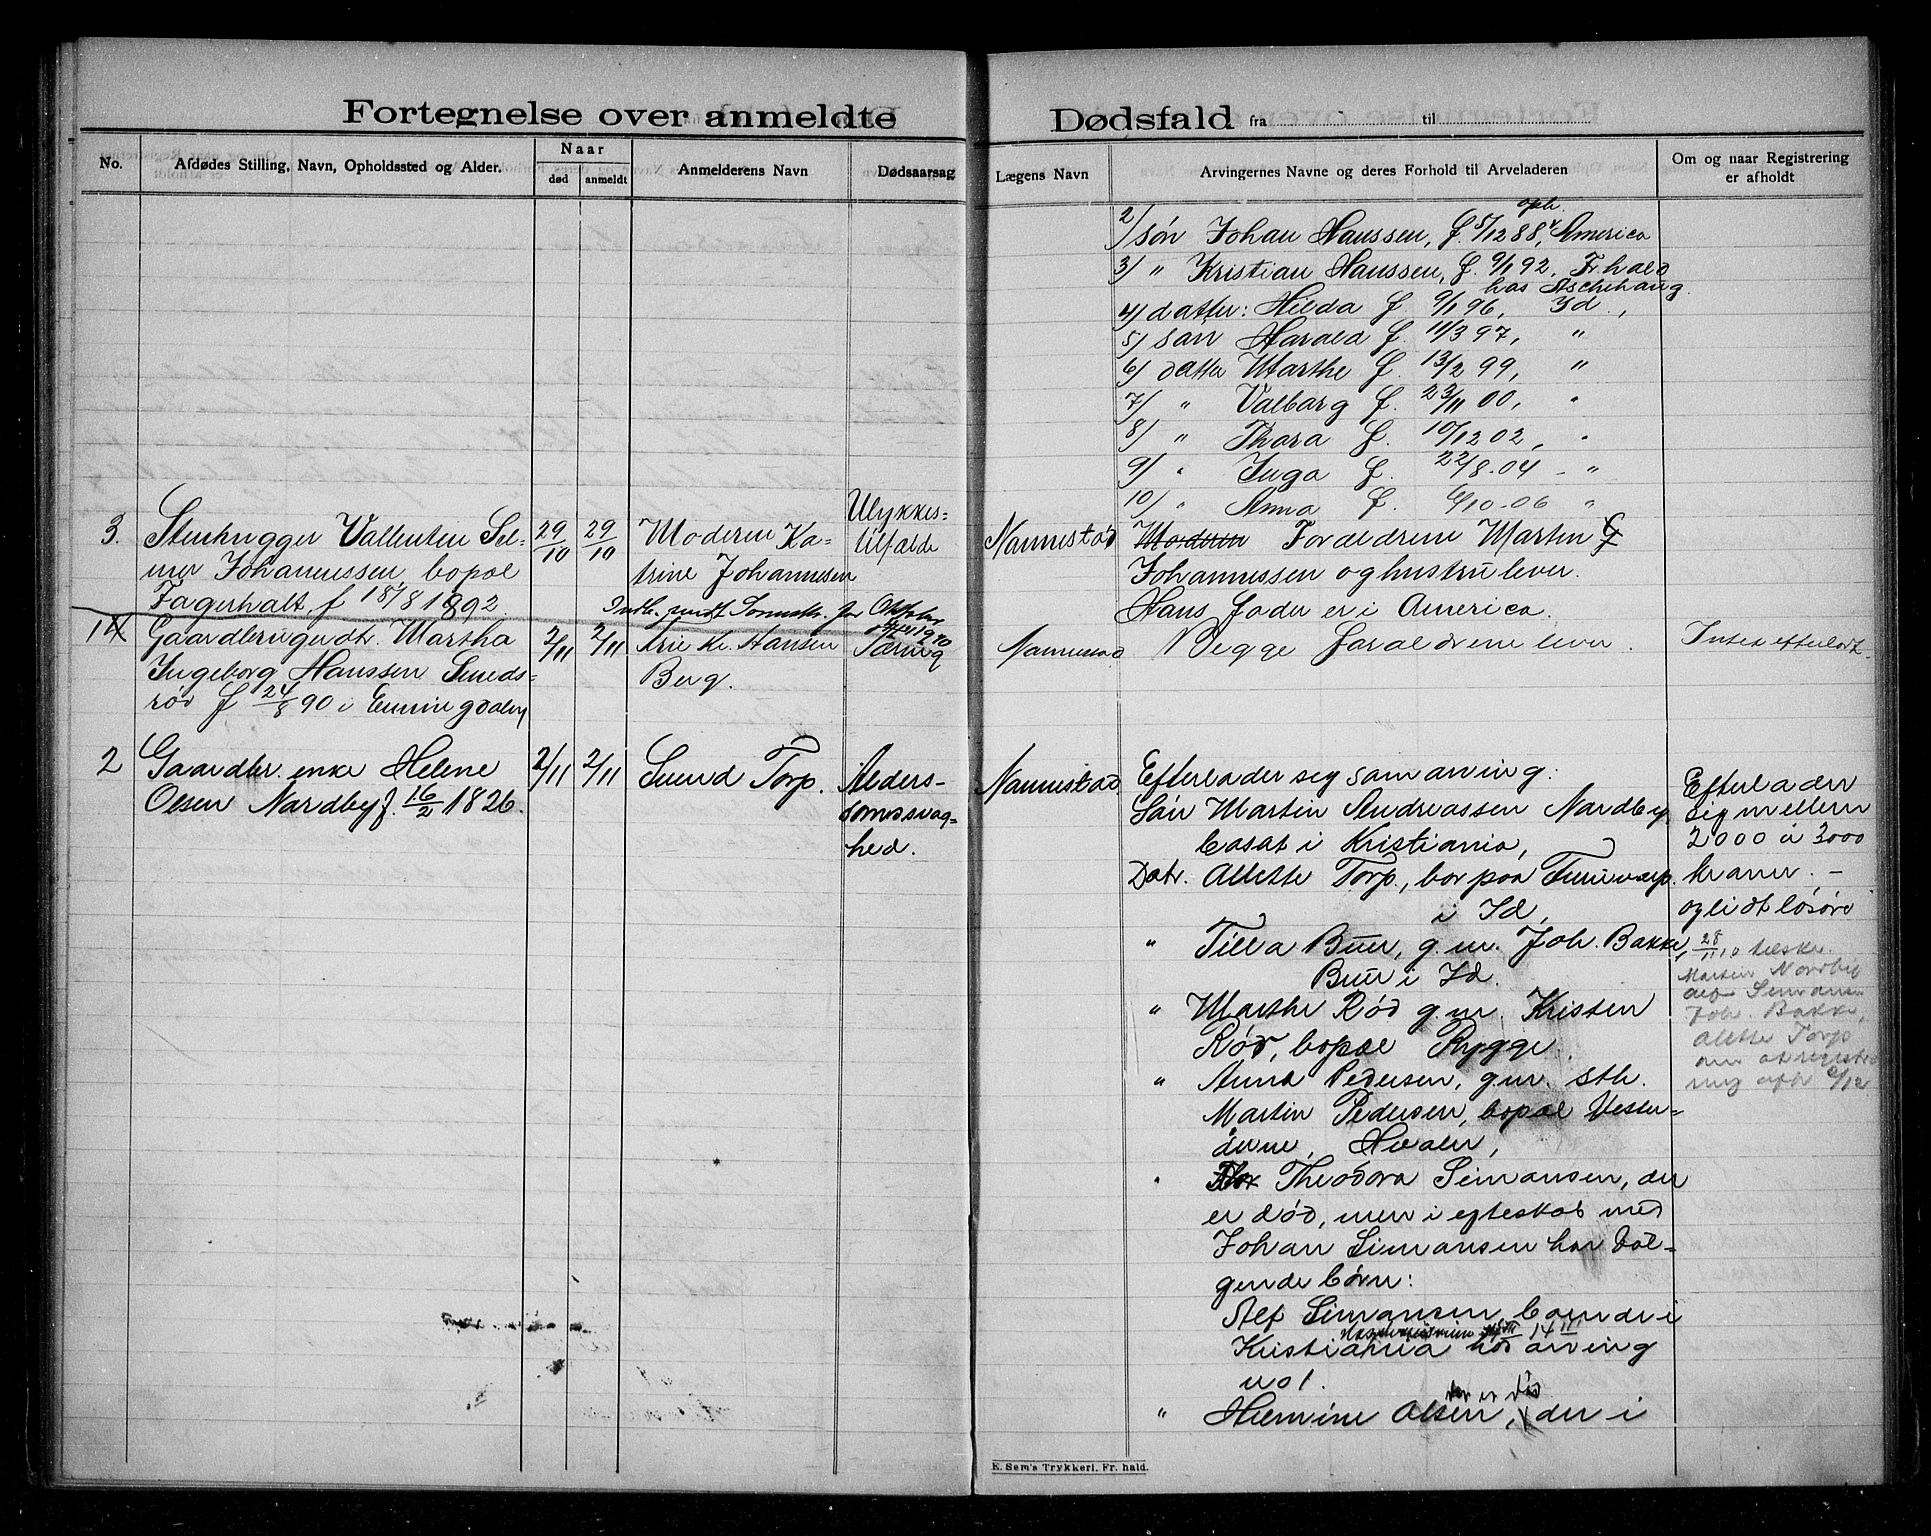 Fortegnelse over anmeldte Dødsfald fra til
No.
Afdødes Stilling, Navn, Opholdssted og Alder.
Naar
død
anmeldt
Anmelderens Navn
Dødsaarsag
Lægens Navn
Arvingernes Navne og deres Forhold til Arveladeren
Om og naar Registrering
er afholdt
2/ søn Johan Hanssen, f. 5/12 88, America
3/ " Kristian Hanssen, f. 9/1 92, Fr.hald
hos Aschehaug
4/ datter: Hilda f. 9/1 96, Id,
5/ søn Harald f. 11/3 97, "
6/ datter Marthe f. 13/2 99, "
7/ " Valborg f. 23/11 00, "
8/ " Thora f. 10/12 02, "
9/ " Inga f. 22/8.04 - "
10/ " Anna f. 6/10.06 "
3. Stenhugger Vallentin Sel-
mer Johannessen, bopæl
Fagerholt, f 18/8 1892
29/10
29/10
Moderen Ka-
trine Johannesen
Ulykkes-
tilfælde
Nannestad
Moderen Forældrene Martin
Johannessen og hustru lever.
Hans fader er i America.
Indb. sendt Sorensk. for Oktober
1910
1 Gaardbrugerdtr. Martha
Ingeborg Hanssen Smeds-
rød f 24/8 90 i Enningdalen
2/11
2/11
Arie Kr. Hansen
Berg.
Tæring
Nannestad
Begge forældrene lever.
Intet efterladt.
2 Gaardbr. enke Helene
Olsen Nordby f. 16/2 1826.
2/11
2/11
Svend Torp.
Alders-
domssvag-
hed.
Nannestad
Efterlader sig som arving:
Søn Martin Andreassen Nordby,
bosat i Kristiania,
Datr. Alette Torp, bor paa
i Id,
" Tilla Buer, g.m. Joh. Bakke,
Buer i Id.
" Marthe Rød g.m. Kristen
Rød, bopæl Rygge.
" Anna Pedersen, g.m. sth.
Martin Pedersen, bopæl Vester-
øerne, Hvaler,
" Theodora Simonsen, der
er død, men i egteskab med
Johan Simonsen har føl-
gende børn:
Alf Simonsen boende i
14/III
Kristiania hos arving
no 1.
der er død
" Hermine Olsen, der i
Efterlader
sig mellem
2000 à 3000
kroner. -
og lidt løsøre
28/11 10
Martin Nordby
Alf Simonsen
Joh. Bakke,
Alette Torp
om at registre
ring afh. 6/12
E. Sem's Trykkeri. Fr.hald.